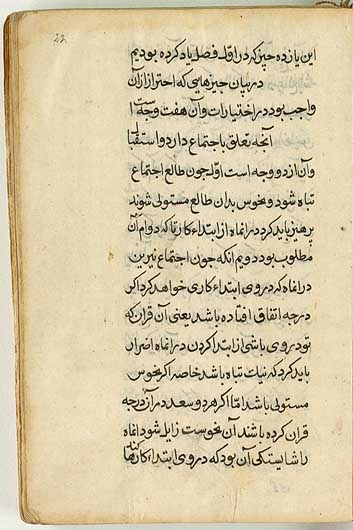 22
این یازده چیز که در اوّل فصل یاد کرده بودیم
در بیان چیزهایی که احتراز از آن
واجب بود در اختیارات و آن هفت وجه است ا
آنچه تعلق باجتماع دارد و استقبال
و آن از دو وجه است اوّل چون طالع اجتماع
تباه شود و نحوس بدان طالع مستولی شوند
پرهیز باید کرد در انماه از ابتداء کارتا که دوام آن
مطلوب بود دویم انکه چون اجتماع نیرین
در انماه که در وی ابتداء کاری خواهد کرد اکر
درجه اتفاق افتاده باشد یعنی آن قران که
بود روی باشی از ابتدا کردن در انماه اضرار
باید کرد که نیات تباه باشد خاصه اکر نحوس
مستولی باشد امّا اکر هر دو سعد در آن درجه
قران کرده باشند آن نحوست زایل شود انماه
را شایستکی آن بود که در وی ابتداء کارها کنند